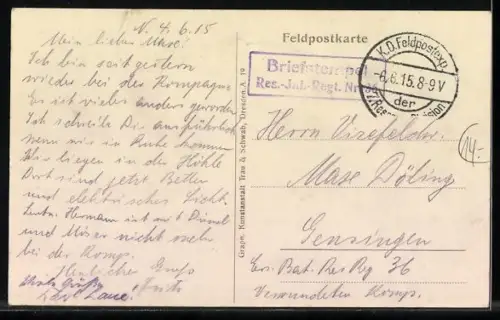 N. 4.6.15
Mein lieber Max!
Ich bin seit gestern
wieder bei der Kompagnie
Es ist vieles anders geworden
Ich schreibe Dir ausführlich
wenn wir in Ruhe kommen
Wir liegen in der Höhle
Dort sind jetzt Betten
und elektrisches Licht.
Leutn. Hermann ist mit
und nicht mehr
bei der Komp.
Herzlichen Gruß
Fritz
Viele Grüße
Feldpostkarte
Briefstempel
Res.-Inf.-Regt. Nr.
K.D. Feldpostexp.
-6.6.15.8-9V
der
Graph. Kunstanstalt Trau & Schwab, Dresden-A. 19
14-
Herrn Vizefeldw.
Max Döling
Gensingen
Ers. Bat. Res Rg 36
Verwundeten Komp.